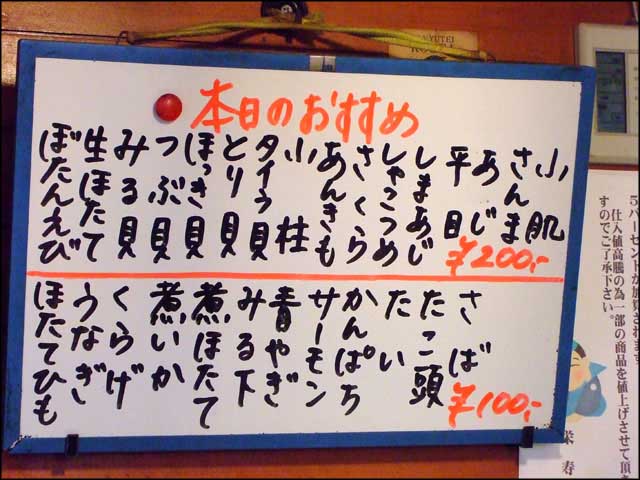 本日のおすすめ
小肌
さんま
あじ
平目
しまあじ
しゃこつめ
さくら
あんきも
小柱
タイラ貝
とり貝
ほっき貝
つぶ貝
みる貝
生ほたて
ぼたんえび
¥200,-
さば
たこ頭
たい
かんぱち
サーモン
青やぎ
みる下
煮ほたて
煮いか
くらげ
うなぎ
ほたてひも
¥100,-
仕入値高騰の為一部の商品を値上げさせて頂
すのでご了承下さい。
栄寿